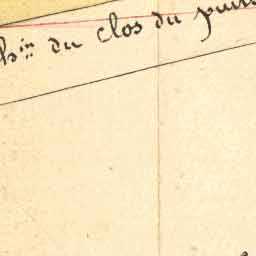 h^in du clos du